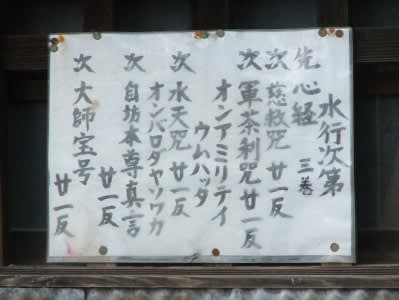 水行次第
先心経三巻
次慈救咒廿一反
次軍荼利咒廿一反
オンアミリテイ
ウムハッタ
次水天咒廿一反
オンバロダヤソワカ
次自坊本尊真言
廿一反
次大師宝号
廿一反